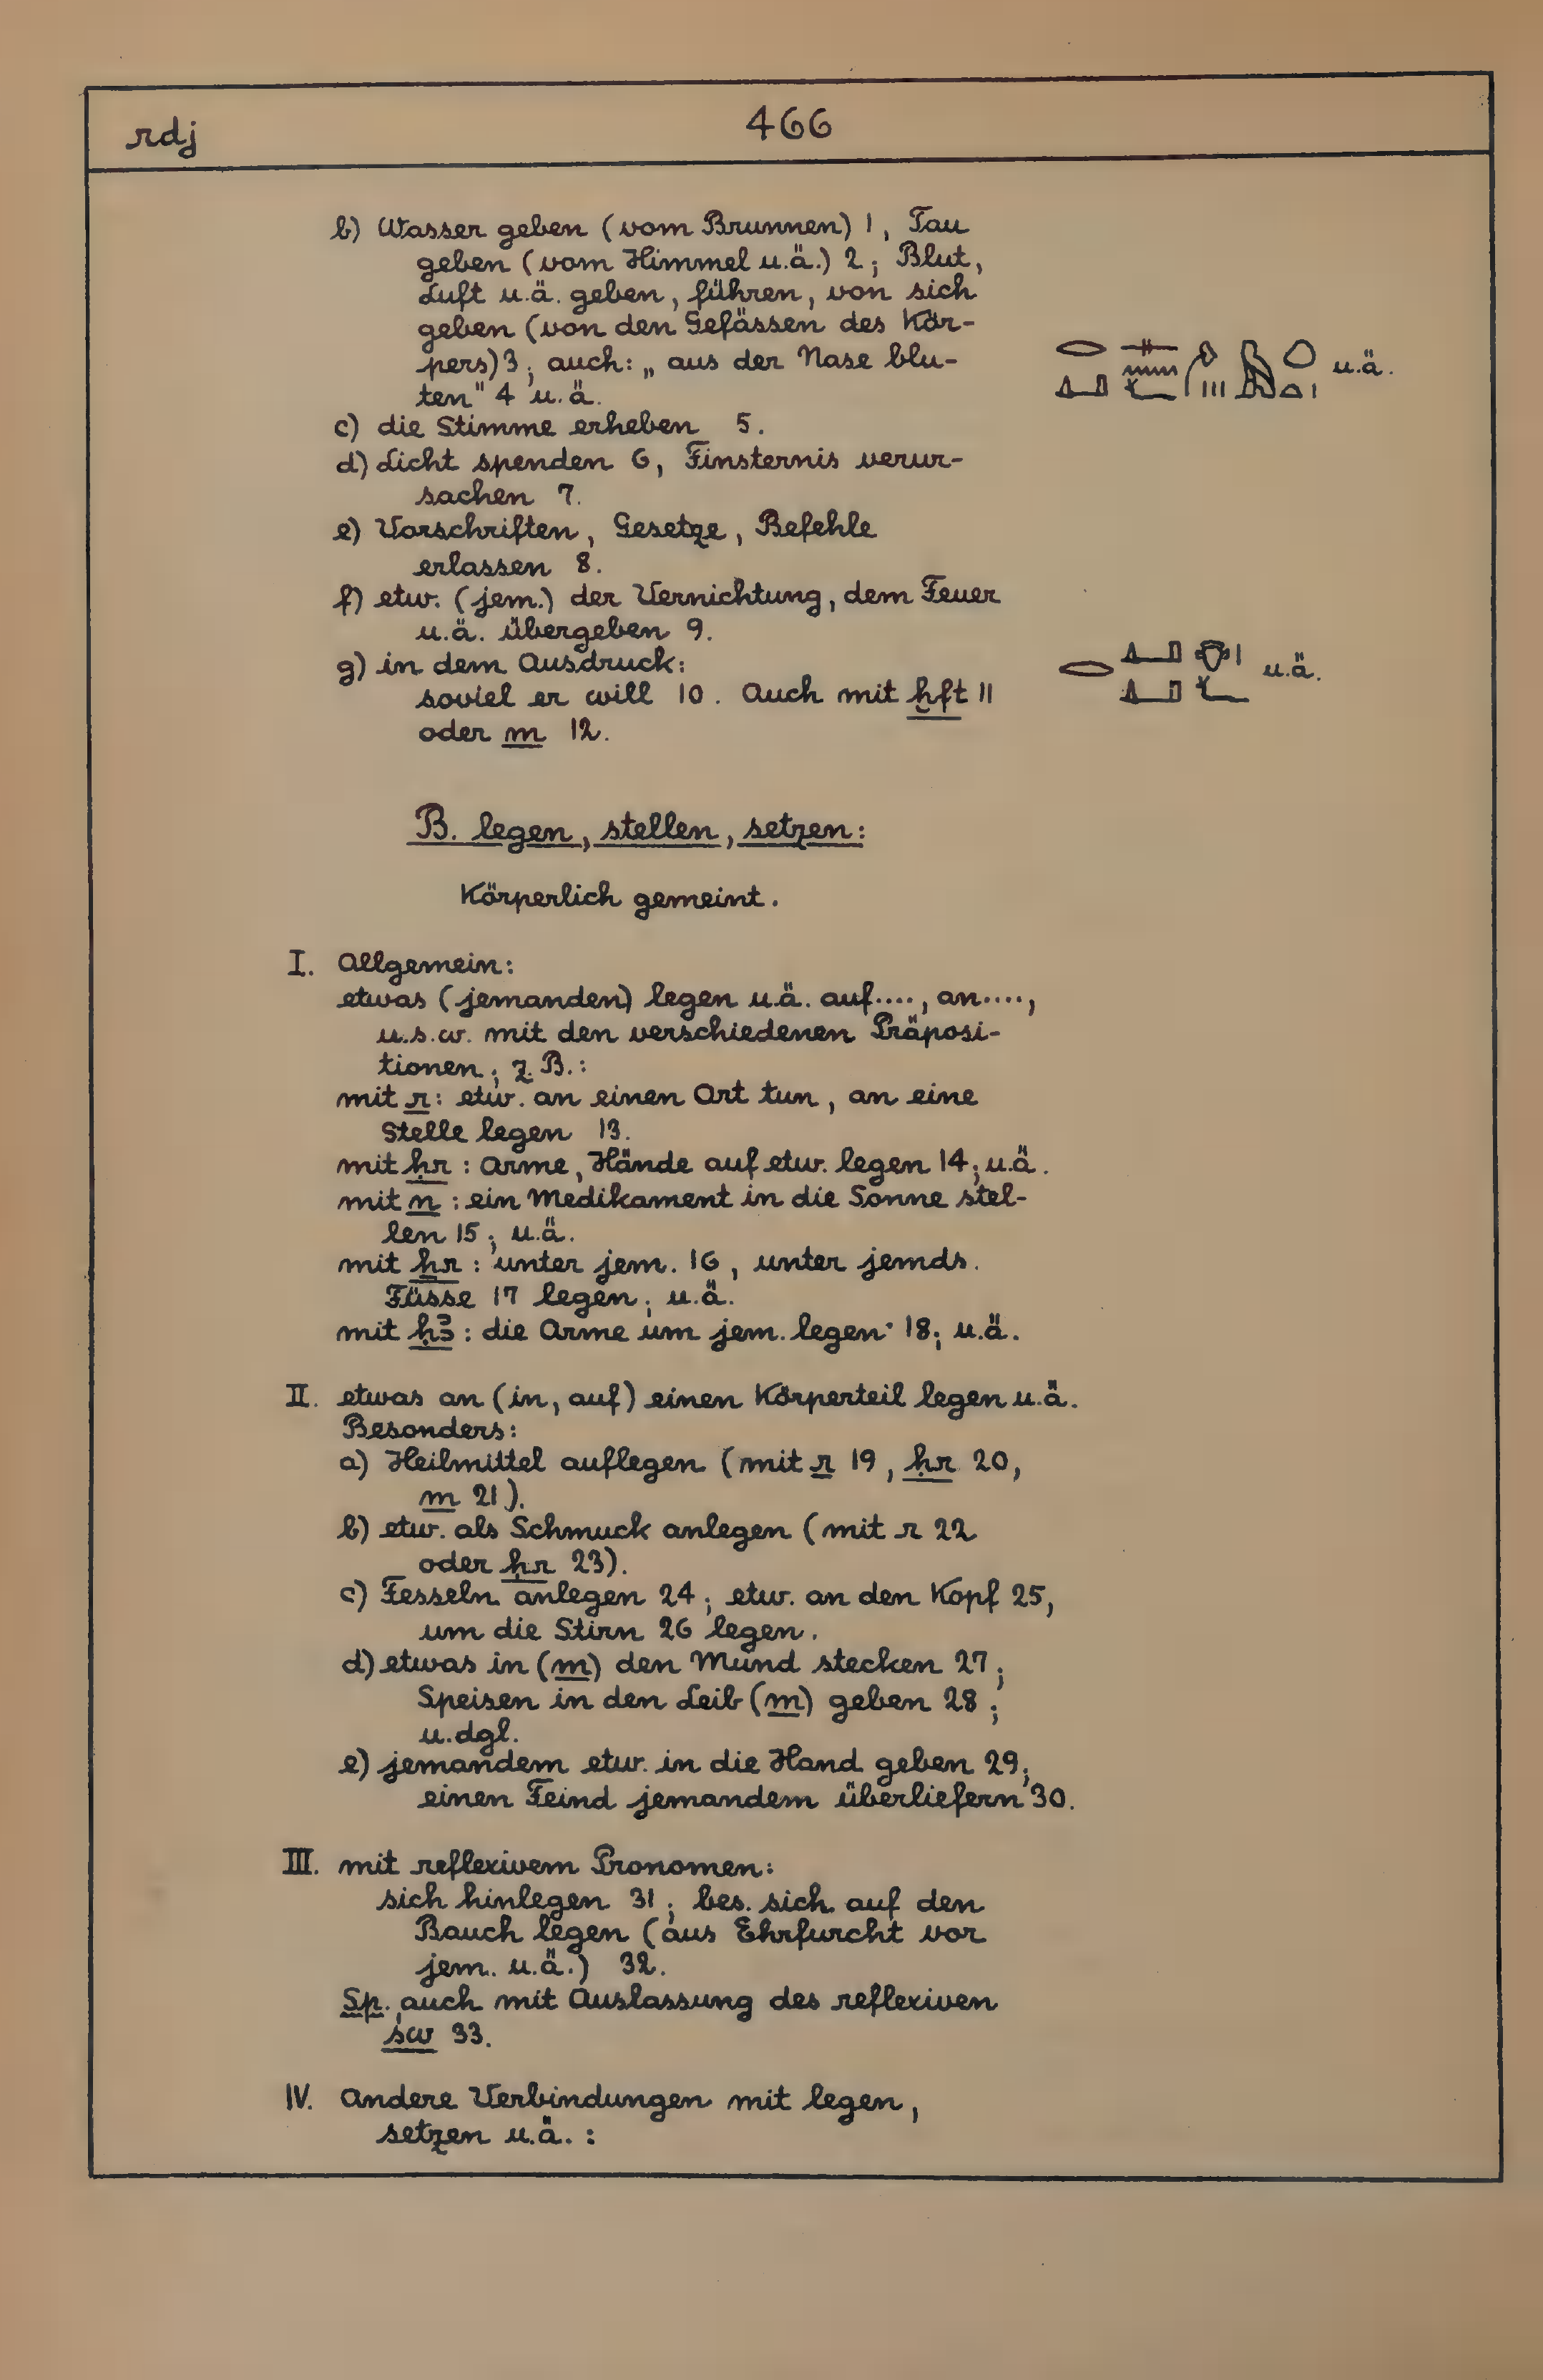 rdj
466
b) Wasser geben (vom Brunnen) 1, Tau
geben (vom Himmel u.ä.) 2; Blut,
Luft u.ä. geben, führen, von sich
geben (von den Gefässen des Kör-
pers) 3; auch: „aus der Nase blu-
ten" 4 u.ä.
u.ä.
c) die Stimme erheben 5.
d) Licht spenden 6, Finsternis verur-
sachen 7.
e) Vorschriften, Gesetze, Befehle
erlassen 8.
f) etw. (jem.) der Vernichtung, dem Feuer
u.ä. übergeben 9.
g) in dem Ausdruck:
u.ä.
soviel er will 10. Auch mit ḫft 11
oder m 12.
B. legen, stellen, setzen:
Körperlich gemeint.
I. Allgemein:
etwas (jemanden) legen u.ä. auf...., an....,
u.s.w. mit den verschiedenen Präposi-
tionen; z.B.:
mit r: etw. an einen Ort tun, an eine
Stelle legen 13.
mit ḥr: Arme, Hände auf etw. legen 14; u.ä.
mit n: ein Medikament in die Sonne stel-
len 15; u.ä.
mit ẖr: unter jem. 16, unter jemds.
Füsse 17 legen; u.ä.
mit ḥꜣ: die Arme um jem. legen 18; u.ä.
II. etwas an (in, auf) einen Körperteil legen u.ä.
Besonders:
a) Heilmittel auflegen (mit r 19, ḥr 20,
m 21).
b) etw. als Schmuck anlegen (mit r 22
oder ḥr 23).
c) Fesseln anlegen 24; etw. an den Kopf 25,
um die Stirn 26 legen.
d) etwas in (m) den Mund stecken 27;
Speisen in den Leib (m) geben 28;
u.dgl.
e) jemandem etw. in die Hand geben 29;
einen Feind jemandem überliefern 30.
III. mit reflexivem Pronomen:
sich hinlegen 31; bes. sich auf den
Bauch legen (aus Ehrfurcht vor
jem. u.ä.) 32.
Sp. auch mit Auslassung des reflexiven
sw 33.
IV. Andere Verbindungen mit legen,
setzen u.ä.: